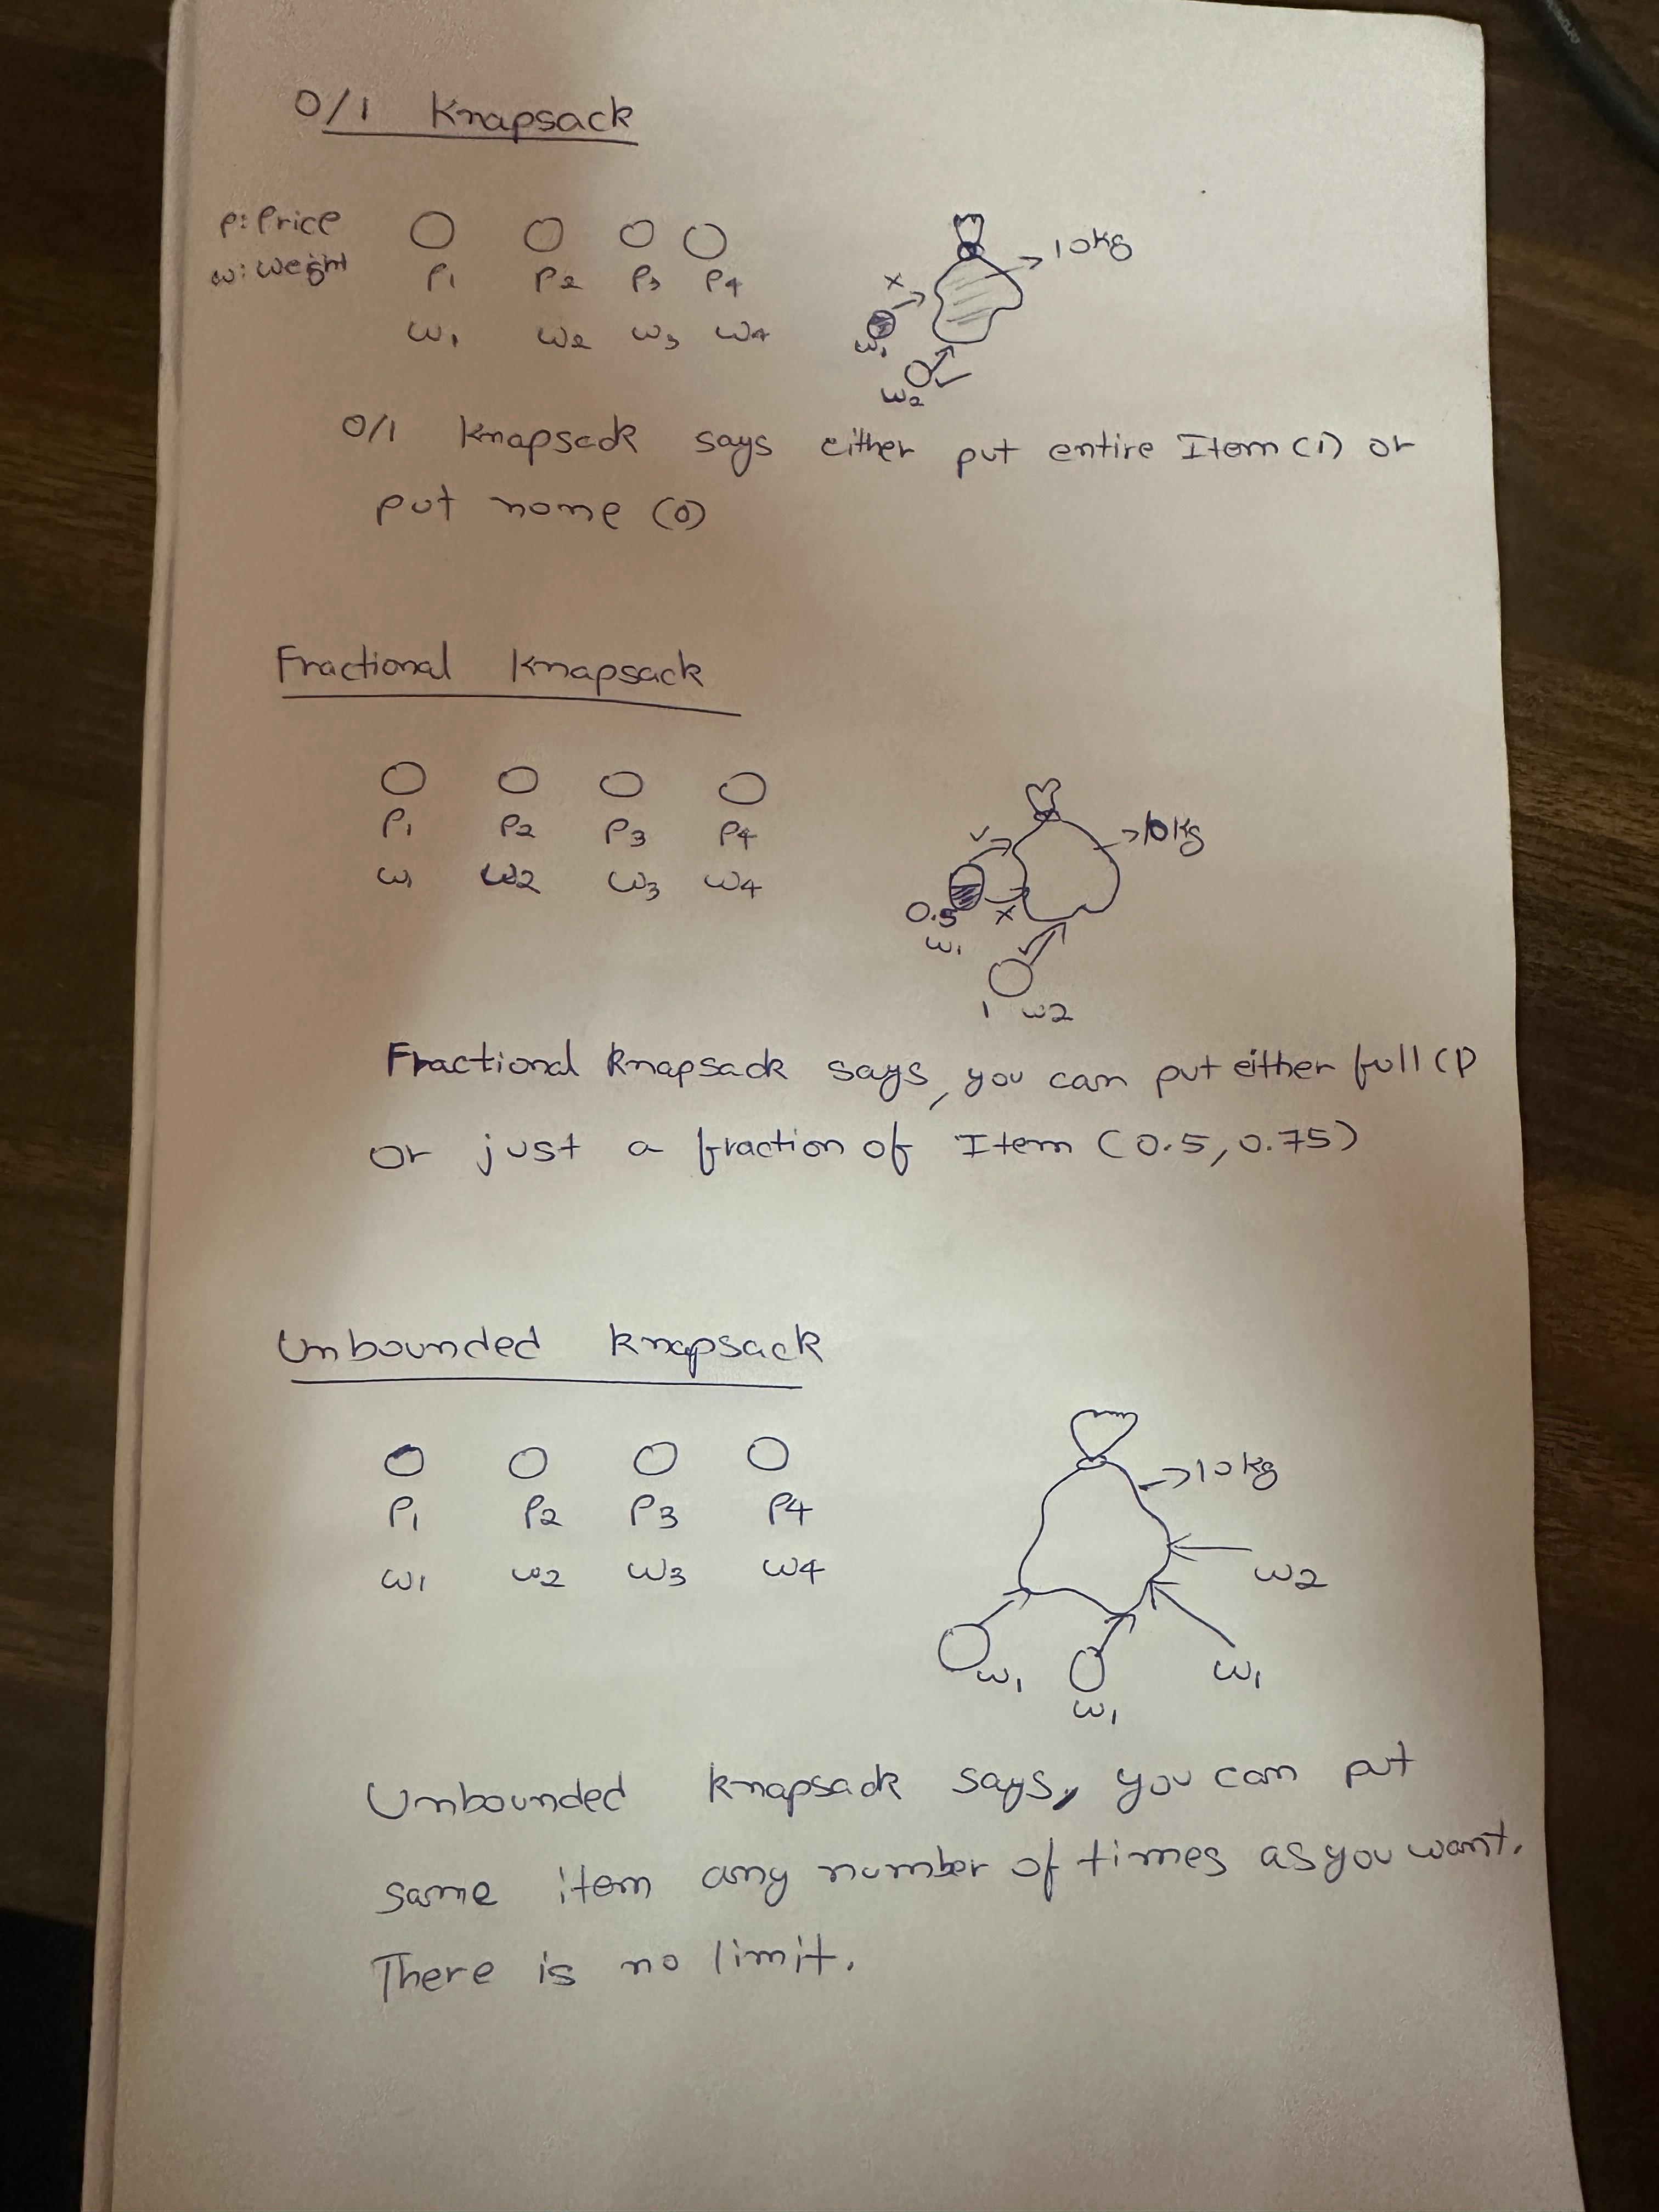 0/1 Knapsack
P: Price
w: weight
P1 P2 P3 P4
w1 w2 w3 w4
10kg
x
w1
w2
0/1 Knapsack says either put entire Item (1) or
put none (0)
Fractional Knapsack
P1 P2 P3 P4
w1 w2 w3 w4
10kg
0.5 x
w1
1 w2
Fractional Knapsack says, you can put either full (1)
or just a fraction of Item (0.5, 0.75)
Unbounded Knapsack
P1 P2 P3 P4
w1 w2 w3 w4
10kg
w2
w1 w1 w1
Unbounded Knapsack says, you can put
same item any number of times as you want.
There is no limit.